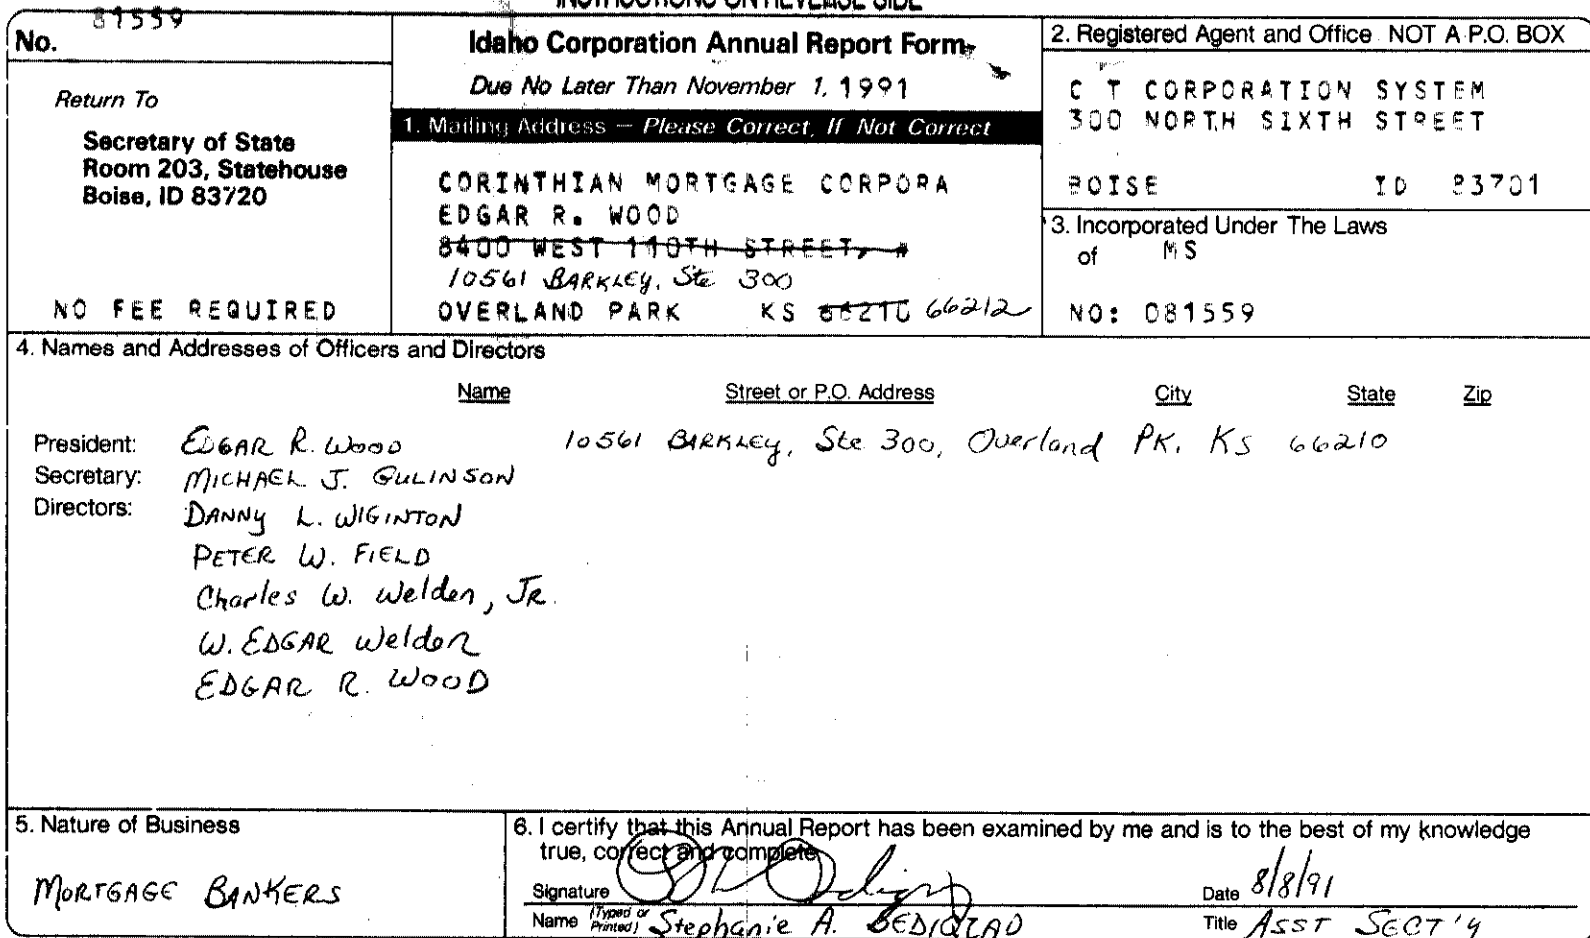 INSTRUCTIONS ON REVERSE SIDE
No. 81559
Return To
Secretary of State
Room 203, Statehouse
Boise, ID 83720
NO FEE REQUIRED
Idaho Corporation Annual Report Form
Due No Later Than November 1, 1991
1. Mailing Address — Please Correct, If Not Correct
CORINTHIAN MORTGAGE CORPORA
EDGAR R. WOOD
8400 WEST 110TH STREET, #
10561 BARKLEY, Ste 300
OVERLAND PARK KS 66210 66212
2. Registered Agent and Office NOT A P.O. BOX
C T CORPORATION SYSTEM
300 NORTH SIXTH STREET
BOISE ID 83701
3. Incorporated Under The Laws
of MS
NO: 081559
4. Names and Addresses of Officers and Directors
Name Street or P.O. Address City State Zip
President: EDGAR R. WOOD 10561 BARKLEY, Ste 300, Overland PK, KS 66210
Secretary: MICHAEL J. GULINSON
Directors: DANNY L. WIGINTON
PETER W. FIELD
Charles W. Welden, JR.
W. EDGAR Welden
EDGAR R. WOOD
5. Nature of Business
MORTGAGE BANKERS
6. I certify that this Annual Report has been examined by me and is to the best of my knowledge
true, correct and complete
Signature
Date 8/8/91
Name (Typed or Printed) Stephanie A.
Title ASST SECT'Y